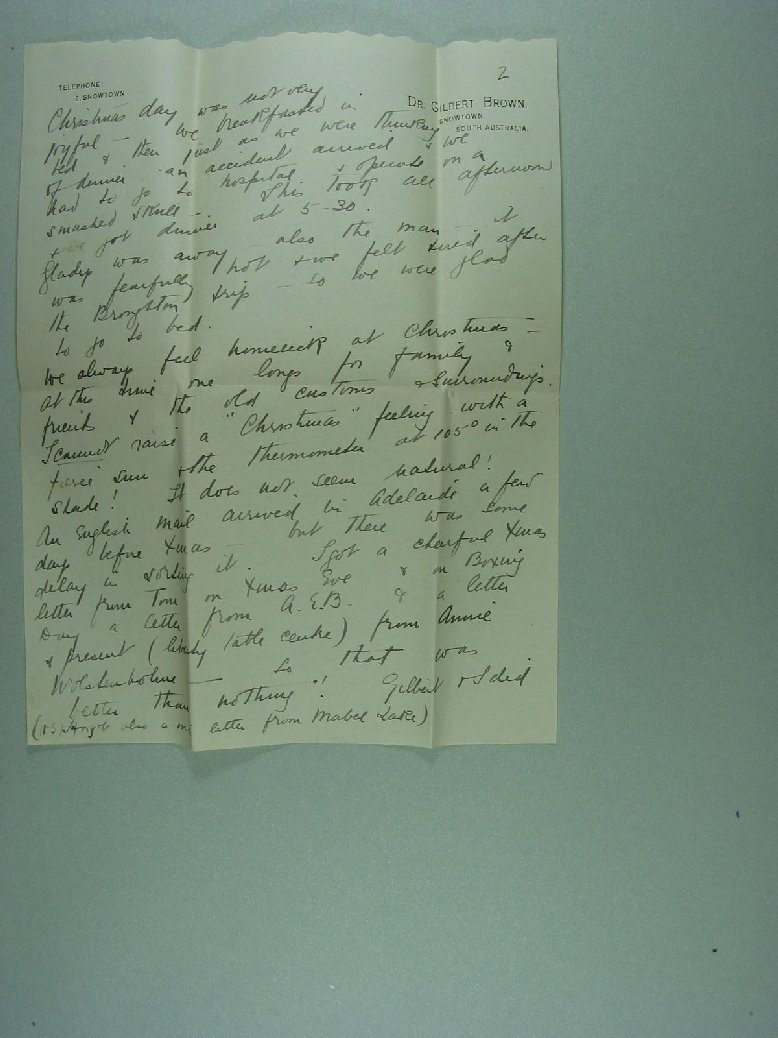 2
TELEPHONE:
2 SNOWTOWN
DR. GILBERT BROWN.
SNOWTOWN
SOUTH AUSTRALIA.
Christmas day was not very
joyful — we breakfasted in
bed & then just as we were thinking
of dinner an accident arrived & we
had to go to hospital & operate on a
smashed skull — This took all afternoon
& got dinner at 5-30.
Gladys was away also the man — it
was fearfully hot & we felt tired after
the Broughton trip — so we were glad
to go to bed.
We always feel homesick at Christmas —
at this time one longs for family &
friends & the old customs & surroundings.
I cannot raise a "Christmas" feeling with a
fierce sun & the thermometer at 105° in the
shade! It does not seem natural!
An English mail arrived in Adelaide a few
days before Xmas — but there was some
delay in sorting it. I got a cheerful Xmas
letter from Tom on Xmas Eve & on Boxing
Day a letter from A.E.B. & a letter
& present (table centre) from Annie
Wolstenholme — so that was
better than nothing! Gilbert & I did
( also a letter from Mabel Lake)